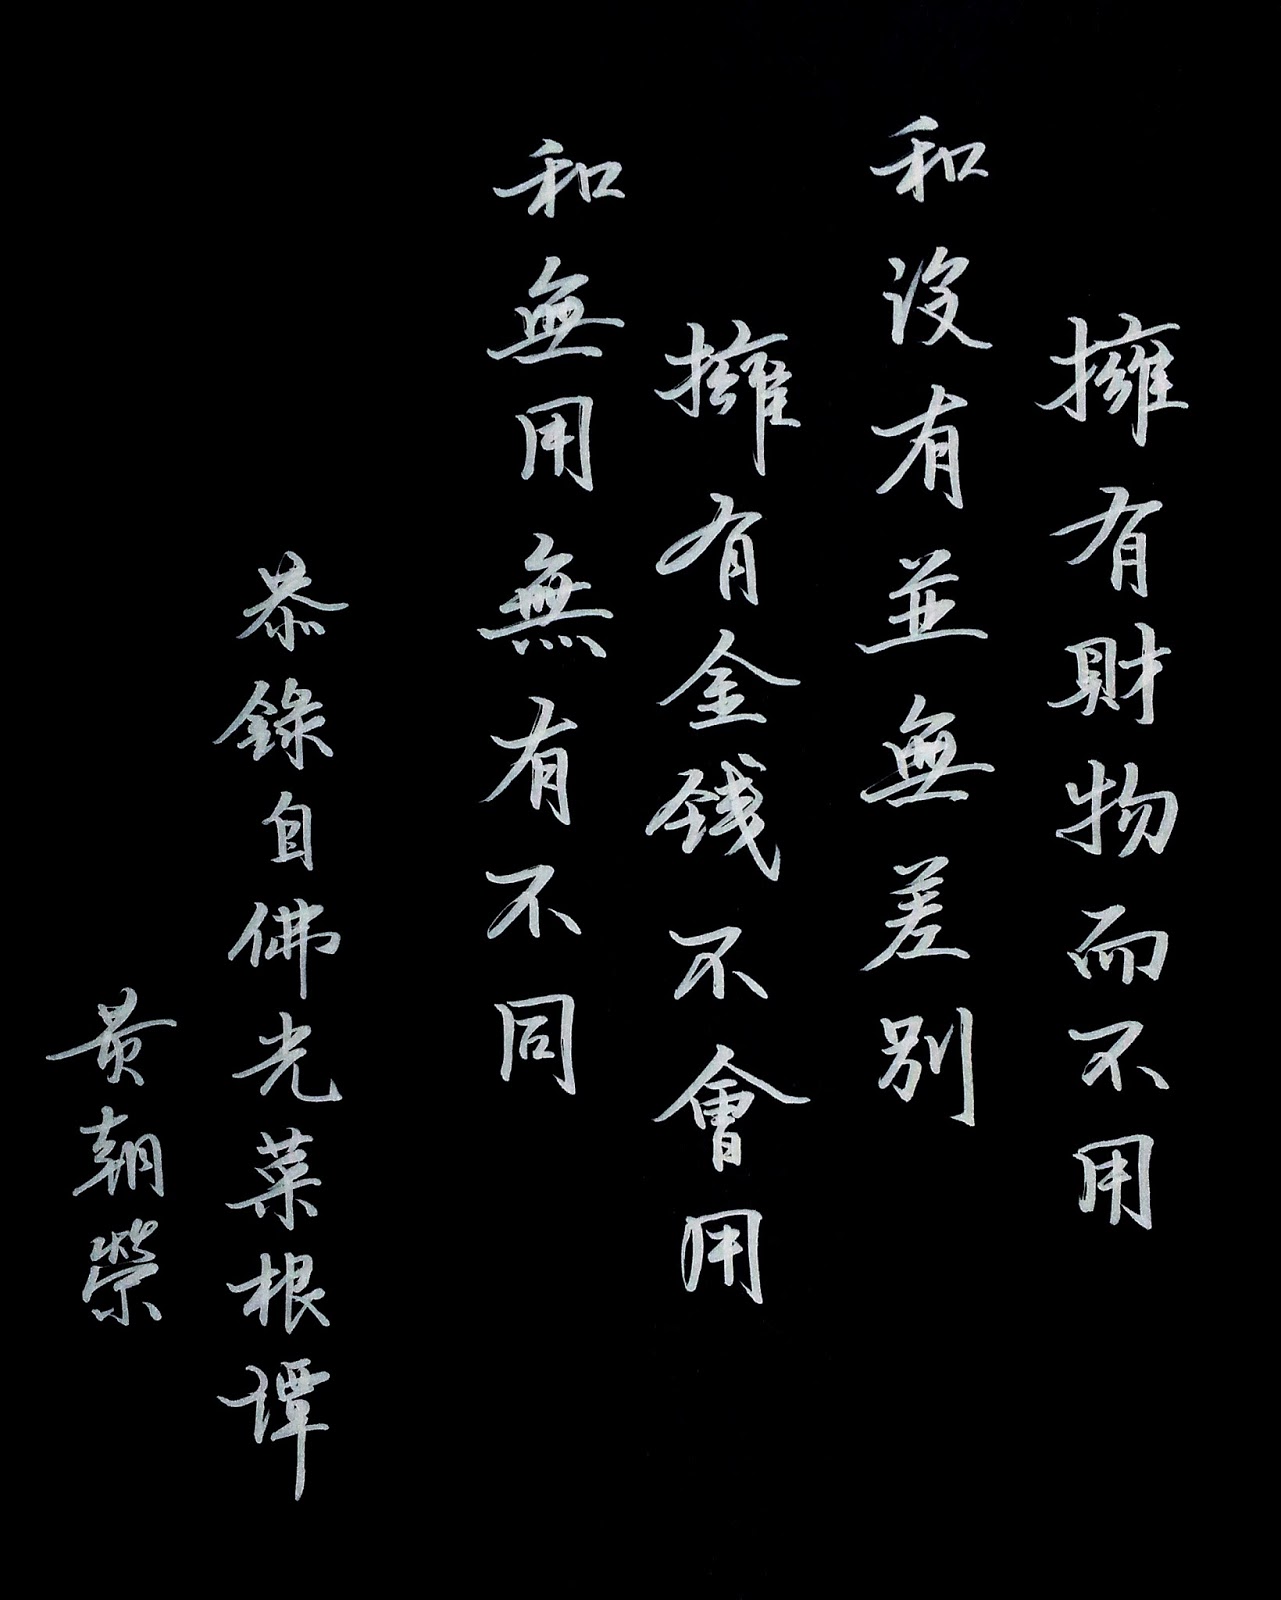 擁有財物而不用
和沒有並無差別
擁有金錢不會用
和無用無有不同
恭錄自佛光菜根譚
黃朝榮